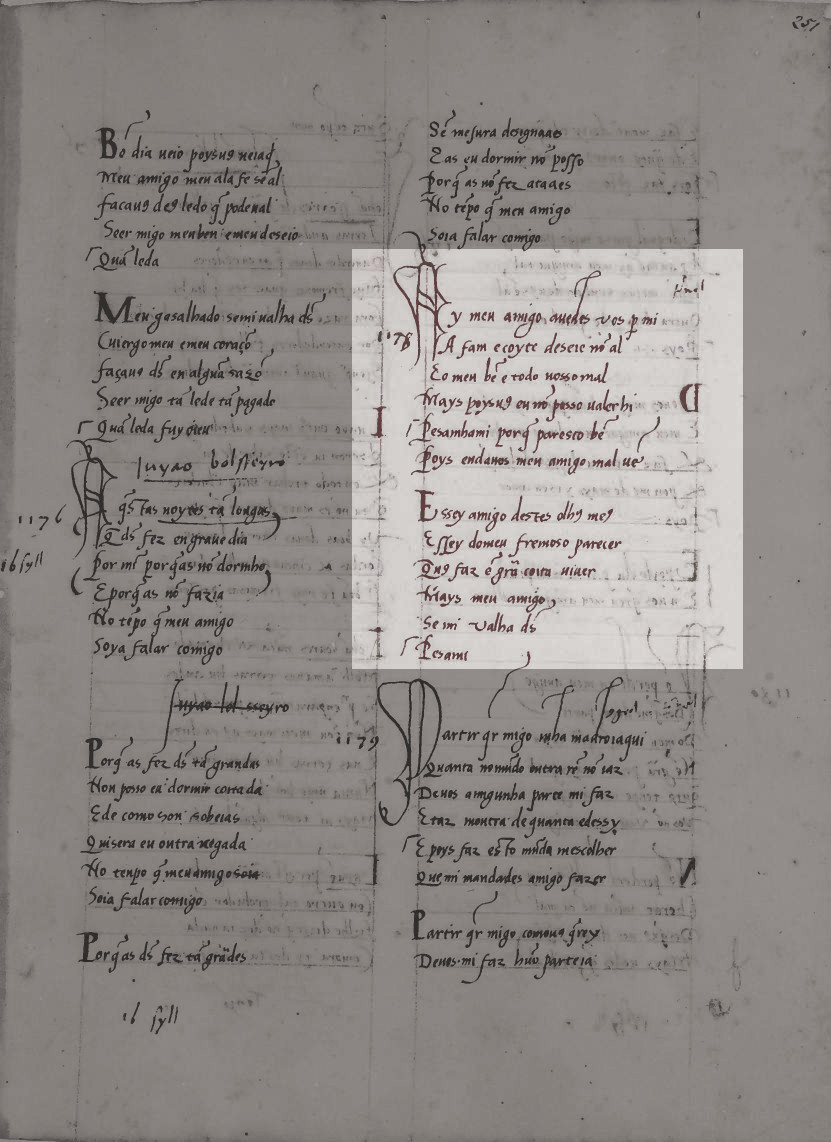 251
Bõ dia ueio poysuꝯ ueiaq̄
Meu amigo meu ala fe se al
façauꝯ deꝯ ledo q̄ podeual
Seer migo meu ben e meu deseio
Quã leda
Meu gasalhado se mi ualha d̄s
Cuiergo meu e meu coraçõ
façauꝯ d̄s en algũa sazõ
Seer migo tã lede tã pagado
Quã leda fuy
1176
Juyao bolsseyro
Aq̄stas noytes tã longas
Q̄ d̄s fez en graue dia
16 syll
Por mĩ porq̄ as nõ dormho
E porq̄ as nõ fazia
No tẽpo q̄ meu amigo
Soya falar comigo
Juyao bolsseyro
Porq̄ as fez d̄s tã grandes
Non posso eu dormir coitada
E de como son sobeias
Quisera eu outra uegada
No tenpo q̄ meu amigo soia
Soia falar comigo
Porq̄ as d̄s fez tã grãdes
16 syll
Sẽ mesura desiguaaes
E as eu dormir nõ posso
Porq̄ as nõ fez ataaes
No tẽpo q̄ meu amigo
Soia falar comigo
1178
Ay meu amigo auedes uos p̱ mi
Afam e coyte deseie nõ al
Eo meu bẽ e todo uosso mal
Mays poysuꝯ eu nõ posso ualer hi
Pesamhami porq̄ paresco bẽ
Poys endauos meu amigo mal uẽ
E ssey amigo destes olhꝯ meꝯ
E ssey do meu fremoso parecer
Quꝯ faz e grã coita uiuer
Mays meu amigo
Se mi ualha d̄s
Pesami
1179
Partir q̄r migo mha madr oiaqui
Quanta no mũdo outra rẽ nõ iaz
De uos amigunha parte mi faz
E faz moutra de quanta edessy
E poys faz esto mãda mescolher
Que mi mandades amigo fazer
Partir q̄r migo comouꝯ q̄rey
De uos mi faz hũa parte ia